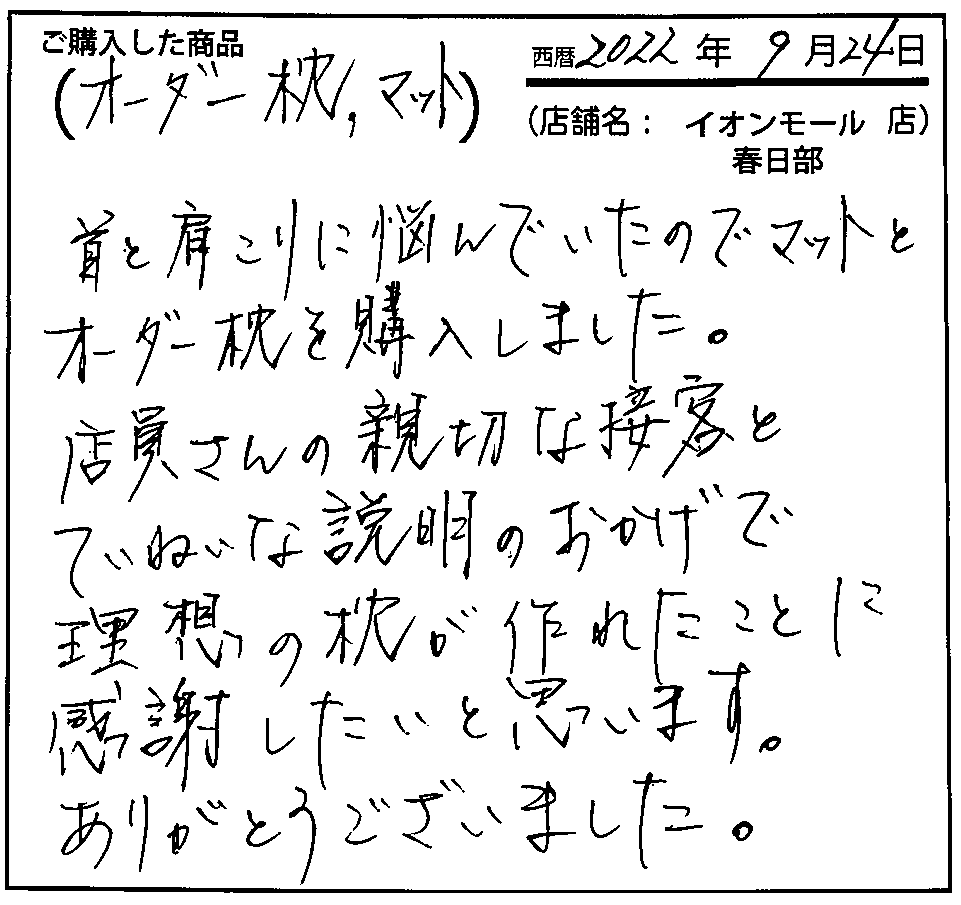 ご購入した商品
西暦2022年 9月24日
(オーダー枕,マット)
(店舗名： イオンモール 店)
春日部
首と肩こりに悩んでいたのでマットと
オーダー枕を購入しました。
店員さんの親切な接客と
ていねいな説明のおかげで
理想の枕が作れたことに
感謝したいと思います。
ありがとうございました。